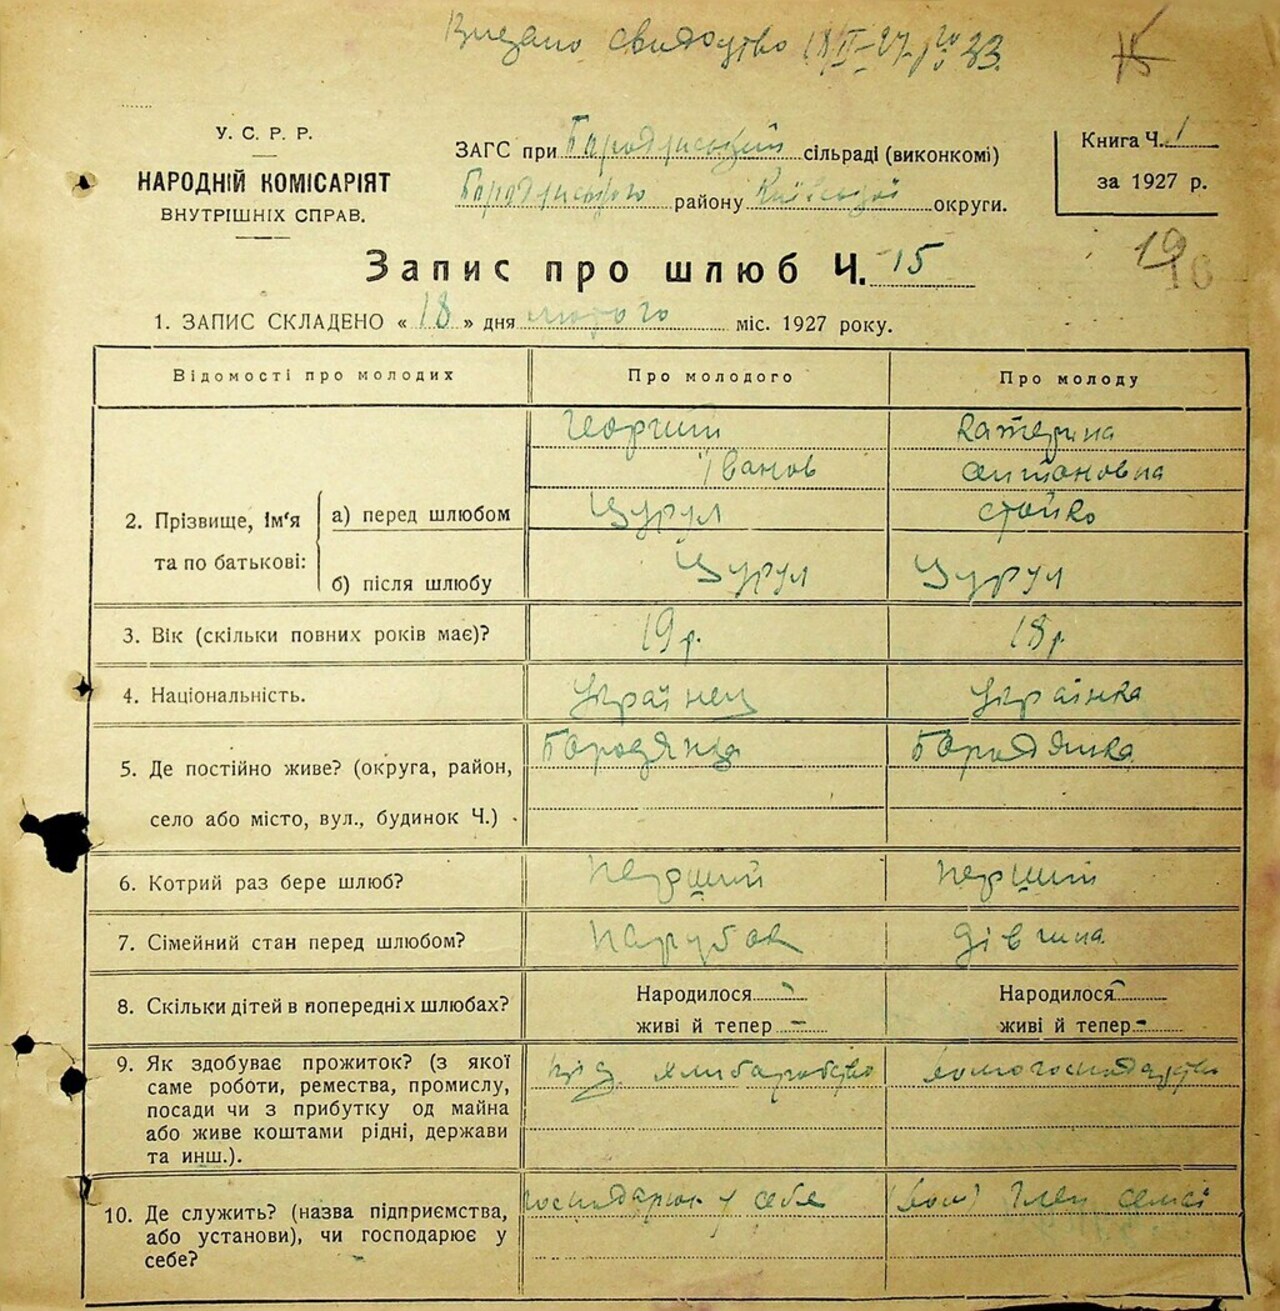 Видано свидоцтво 18/II-27 р. № 33.
15
У. С. Р. Р.
НАРОДНІЙ КОМІСАРІЯТ
ВНУТРІШНІХ СПРАВ.
ЗАГС при Бородянській сільраді (виконкомі)
Бородянського району Київської округи.
Книга Ч. 1
за 1927 р.
19
16
Запис про шлюб Ч. 15
1. ЗАПИС СКЛАДЕНО « 18 » дня лютого міс. 1927 року.
Відомості про молодих Про молодого Про молоду
Георгий Катерина
Іванов Антоновна
2. Прізвище, ім'я та по батькові: а) перед шлюбом Цурул Стойко
б) після шлюбу Цурул Цурул
3. Вік (скільки повних років має)? 19 р. 18 р.
4. Національність. Українец Українка
5. Де постійно живе? (округа, район, Бородянка Бородянка
село або місто, вул., будинок Ч.)
6. Котрий раз бере шлюб? перший перший
7. Сімейний стан перед шлюбом? парубок дівчина
8. Скільки дітей в попередніх шлюбах? Народилося - Народилося -
живі й тепер - живі й тепер -
9. Як здобуває прожиток? (з якої від хлиборобство домогосподарство
саме роботи, ремества, промислу,
посади чи з прибутку од майна
або живе коштами рідні, держави
та инш.).
10. Де служить? (назва підприємства, господарює у себе член семьї
або установи), чи господарює у
себе?